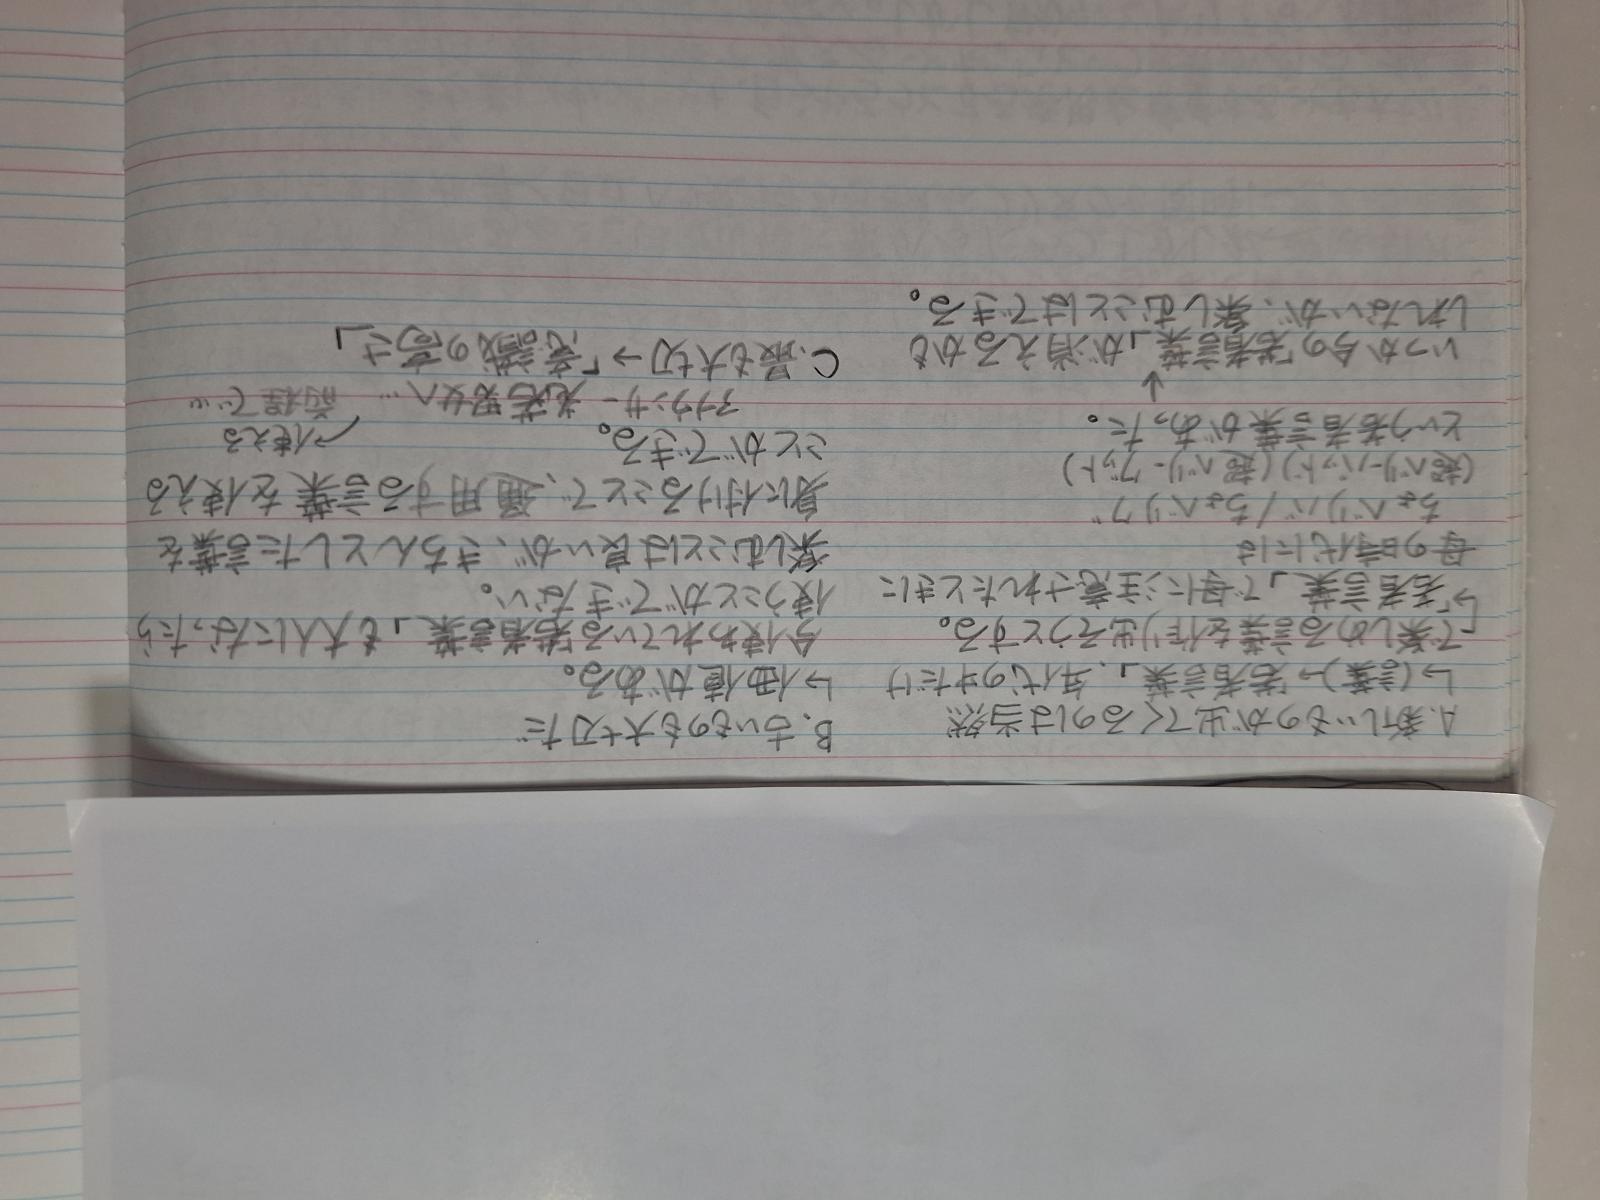 A.新しいものが出てくるのは当然
↳(言葉)→「若者言葉」、年代の中だけ
で楽しめる言葉を作り出そうとする。
↳「若者言葉」で母に注意されたときに
母の時代には
ちょベリバ/ちょベリグ
(超ベリーバッド)(超ベリーグッド)
という若者言葉があった。
↓
いつか今の「若者言葉」が消えるかも
しれないが、楽しむことはできる。
B.古いものも大切だ
↳価値がある。
今使われている「若者言葉」も大人になったら
使うことができない。
楽しむことは良いが、きちんとした言葉を
身に付けることで、通用する言葉を使える
ことができる。
↗使える
アナウンサー 老若男女へ… 前程で…
C.最も大切→「意識の高さ」